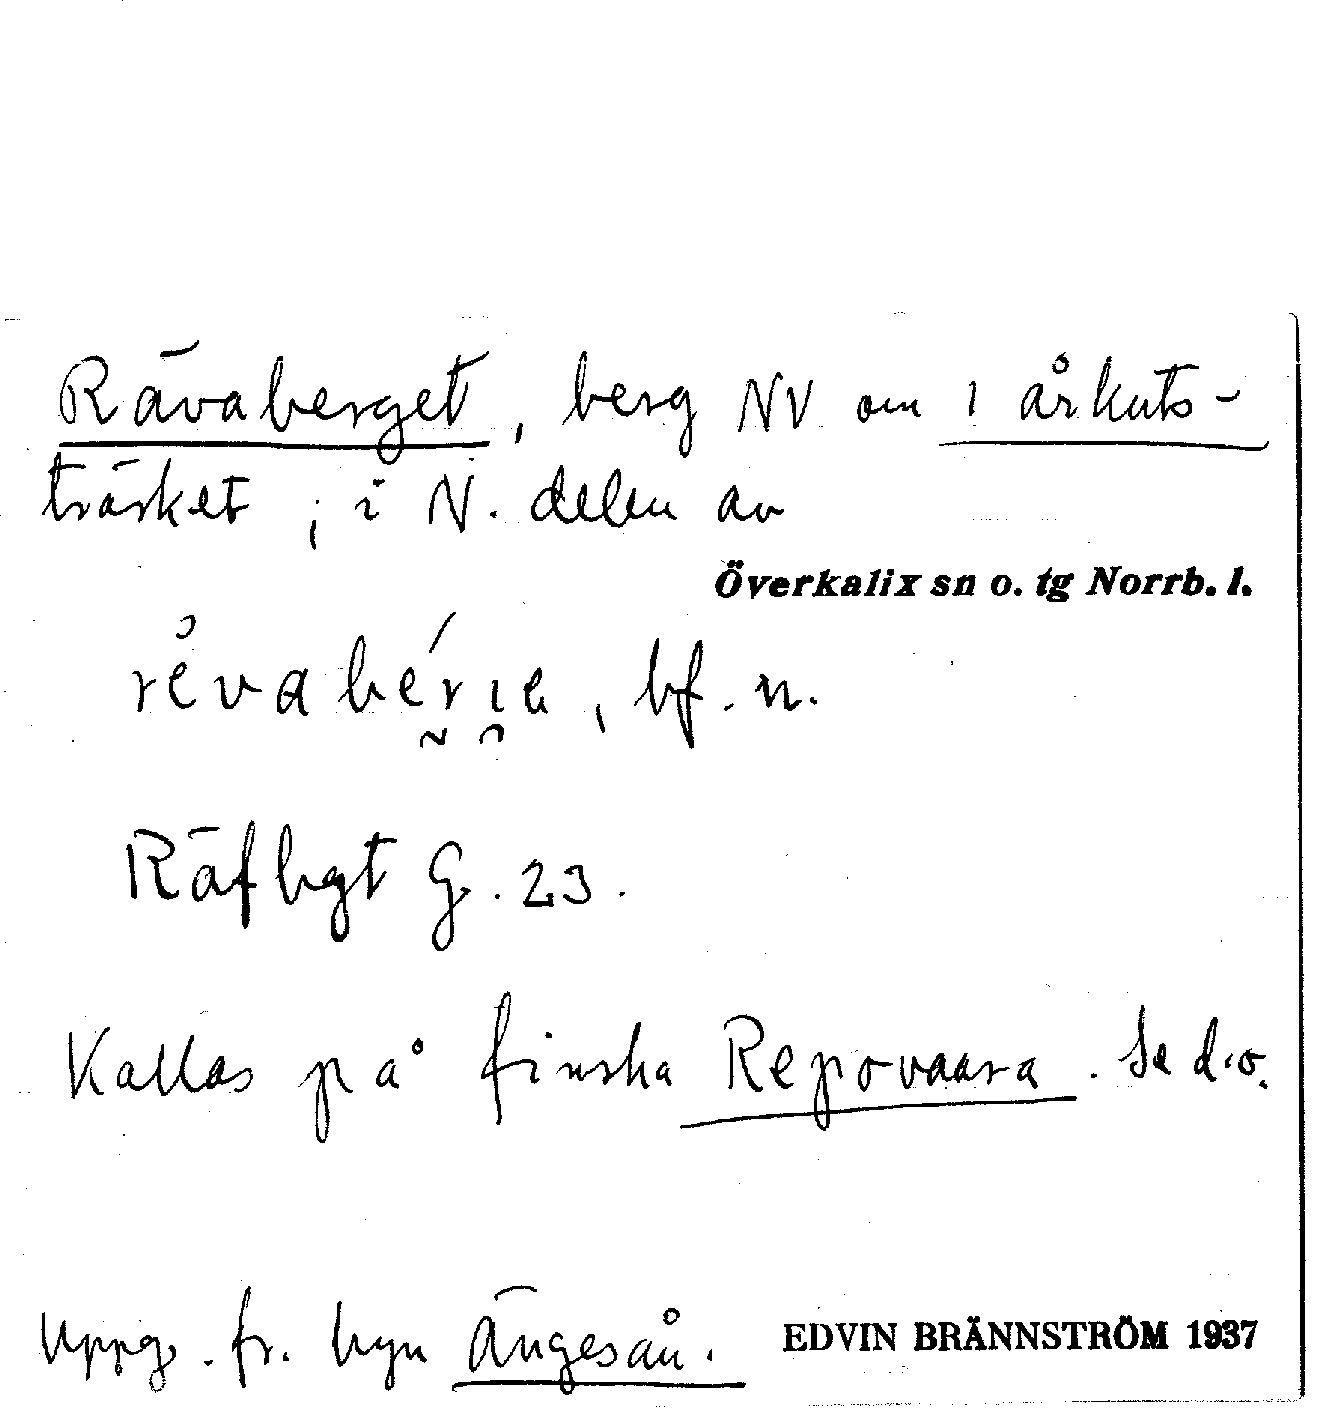 Rävaberget, berg NV om 1 årkuts-
träsket, i N. delen av
Överkalix sn o. tg Norrb. l.
bf. n.
Räfbgt G. 23.
Kallas på finska Repovaara. Se d.o.
Uppg. fr. byn Ängesån.
EDVIN BRÄNNSTRÖM 1937